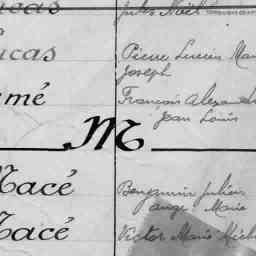 Lucas Jules Noël
Lucas Pierre Lucien
Joseph
François Alexandre
Jean Louis
M
Macé Benjamin Julien
Ange Marie
Macé Victor Marie